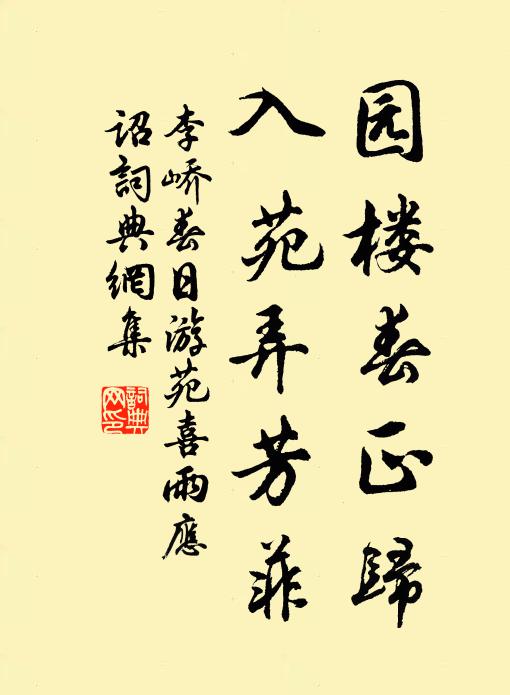 园楼春正歸
入苑弄芳菲
李嶠春日游苑喜雨應
詔詞典網集
詞典
网印